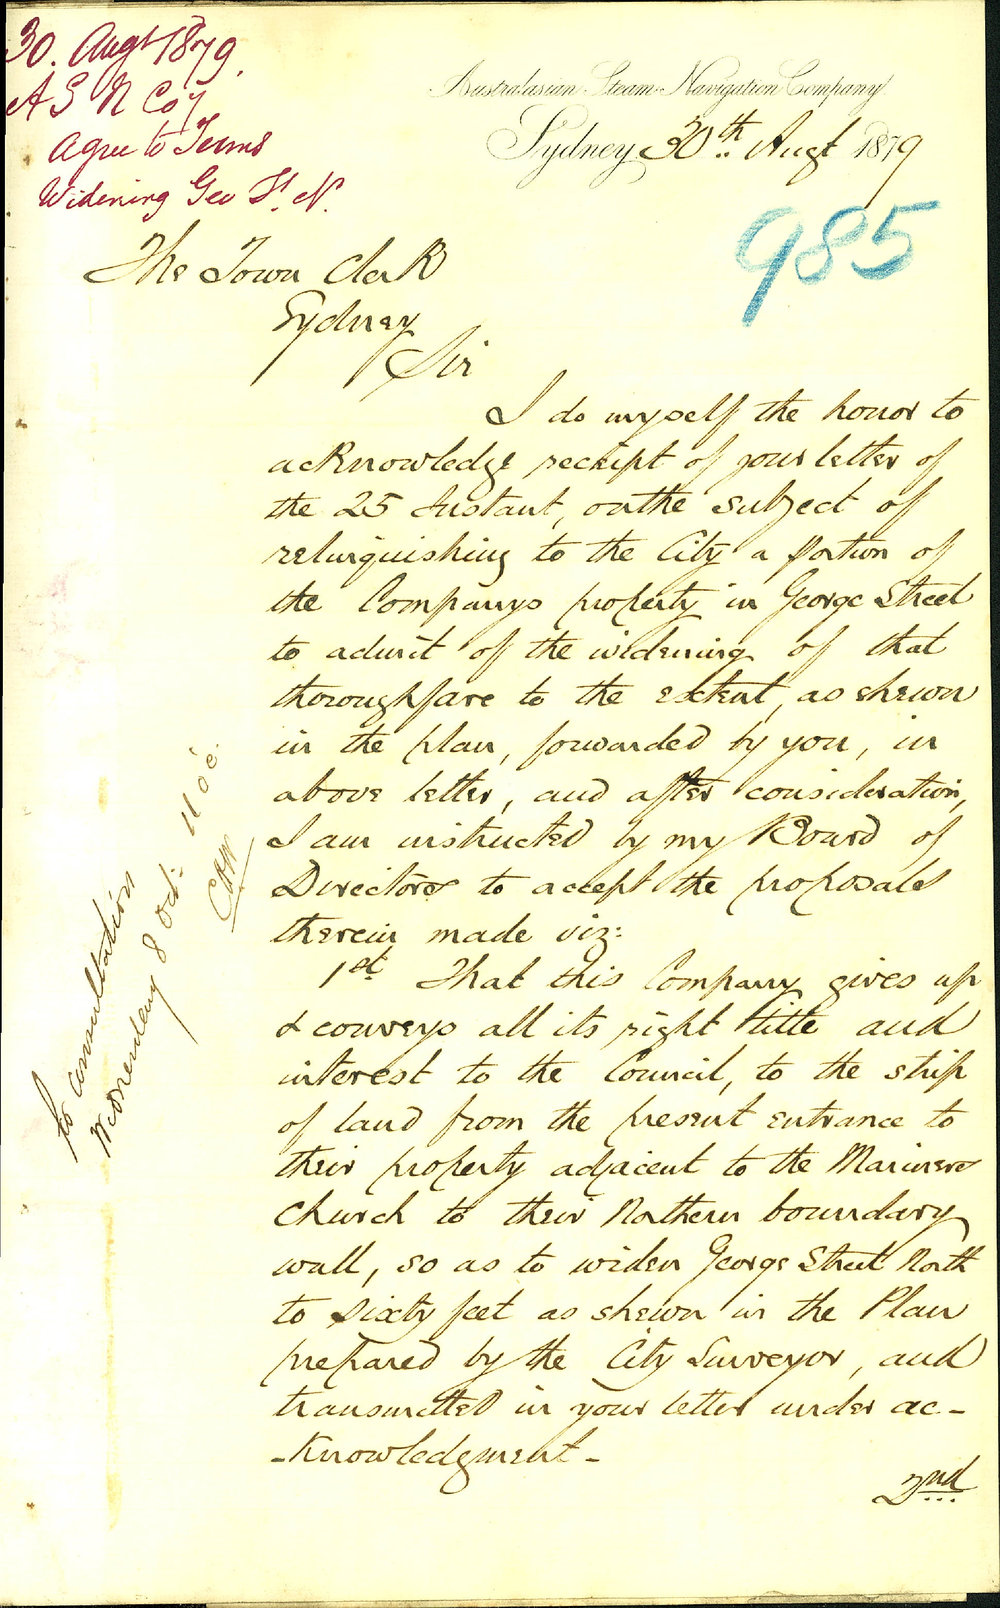 30. Augt 1879.
A S N Coy
Agree to Terms
Widening Geo St. N.
Australasian Steam Navigation Company
Sydney 30th Augt 1879
985
The Town Clerk
Sydney
Sir
I do myself the honor to
acknowledge receipt of your letter of
the 25 Instant, on the subject of
relinquishing to the City a portion of
the Companys property in George Street
to admit of the widening of that
thoroughfare to the extent, as shewn
in the plan, forwarded by you, in
above letter, and after consideration,
I am instructed by my Board of
Directors to accept the proposals
therein made viz:
1st That this Company gives up
& conveys all its right title and
interest to the Council, to the strip
of land from the present entrance to
their property adjacent to the Mariners
Church to their Northern boundary
wall, so as to widen George Street North
to sixty feet as shewn in the Plan
prepared by the City Surveyor, and
transmitted in your letter under ac-
-knowledgment-
2nd
for consultation
Wednesday 8 Oct: 11 o'c.